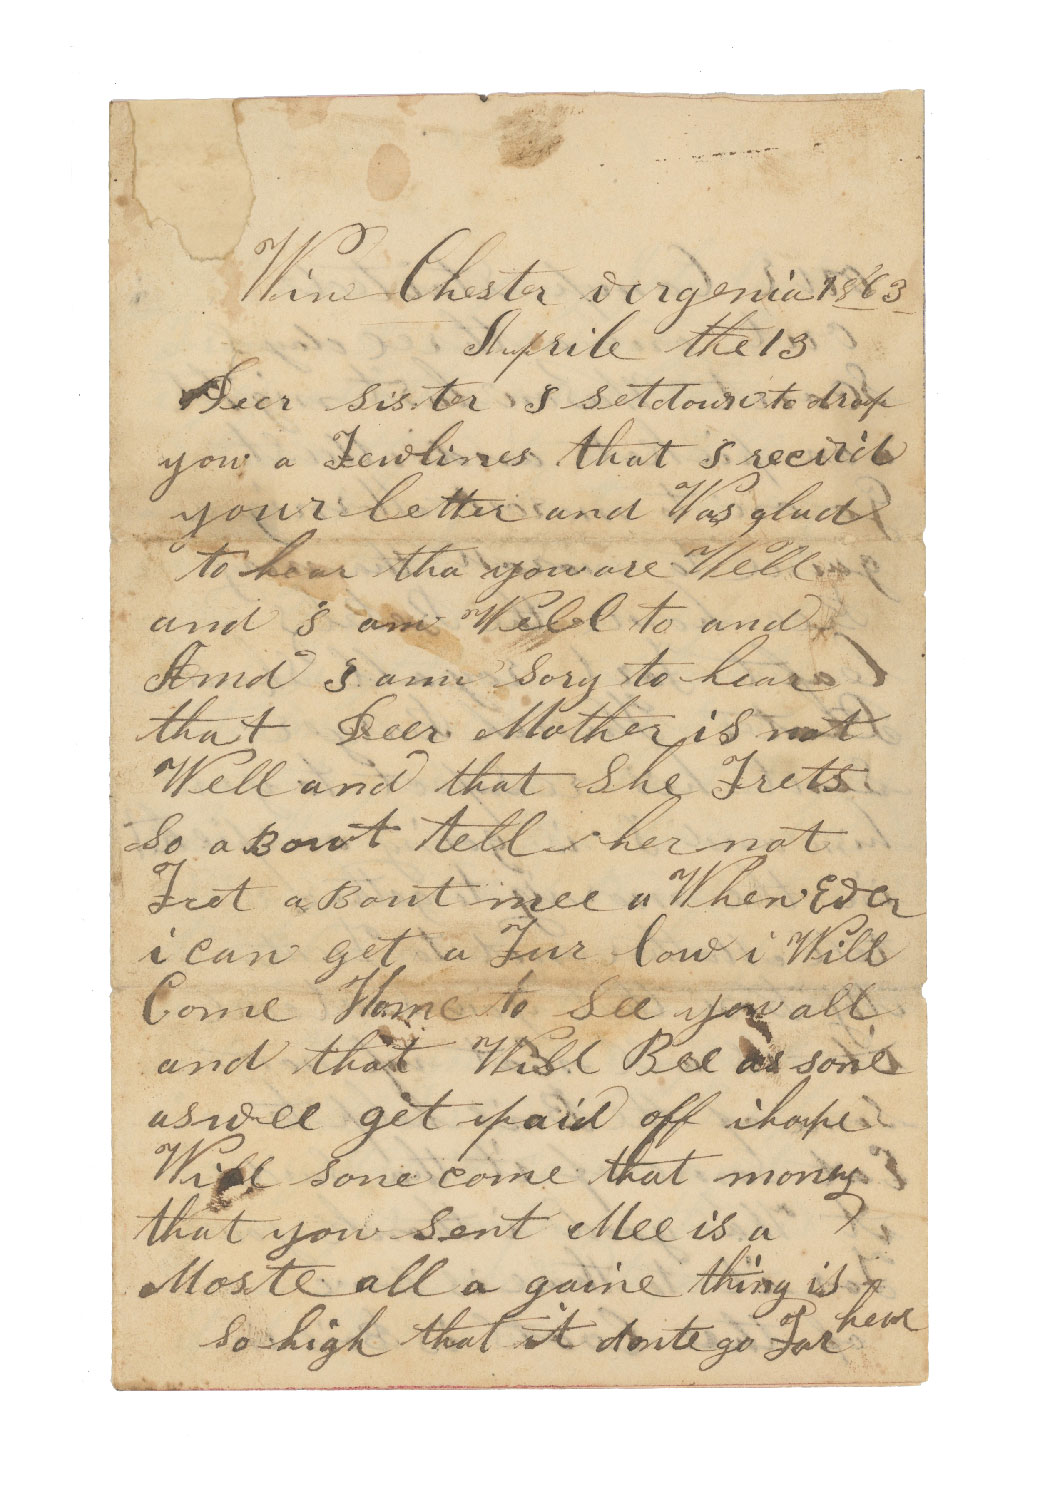 Win Chester vergenia 1863
Auprile the 13
Deer sister I setdown to drop
you a Fewlines that I recivid
your letter and Was glad
to hear tha you are Well
and I am Well to and
And I am sory to hear
that Deer Mother is not
Well and that She Frets
So a Bowt tell her not
Fret a Bout mee a When Ever
i can get a Fur low i Will
Come Home to See you all
and that Will Bee as sone
as wee get paid off i hope
Will sone come that money
that you Sent Mee is a
Moste all a gaine thing is
so high that it donte go Far hear